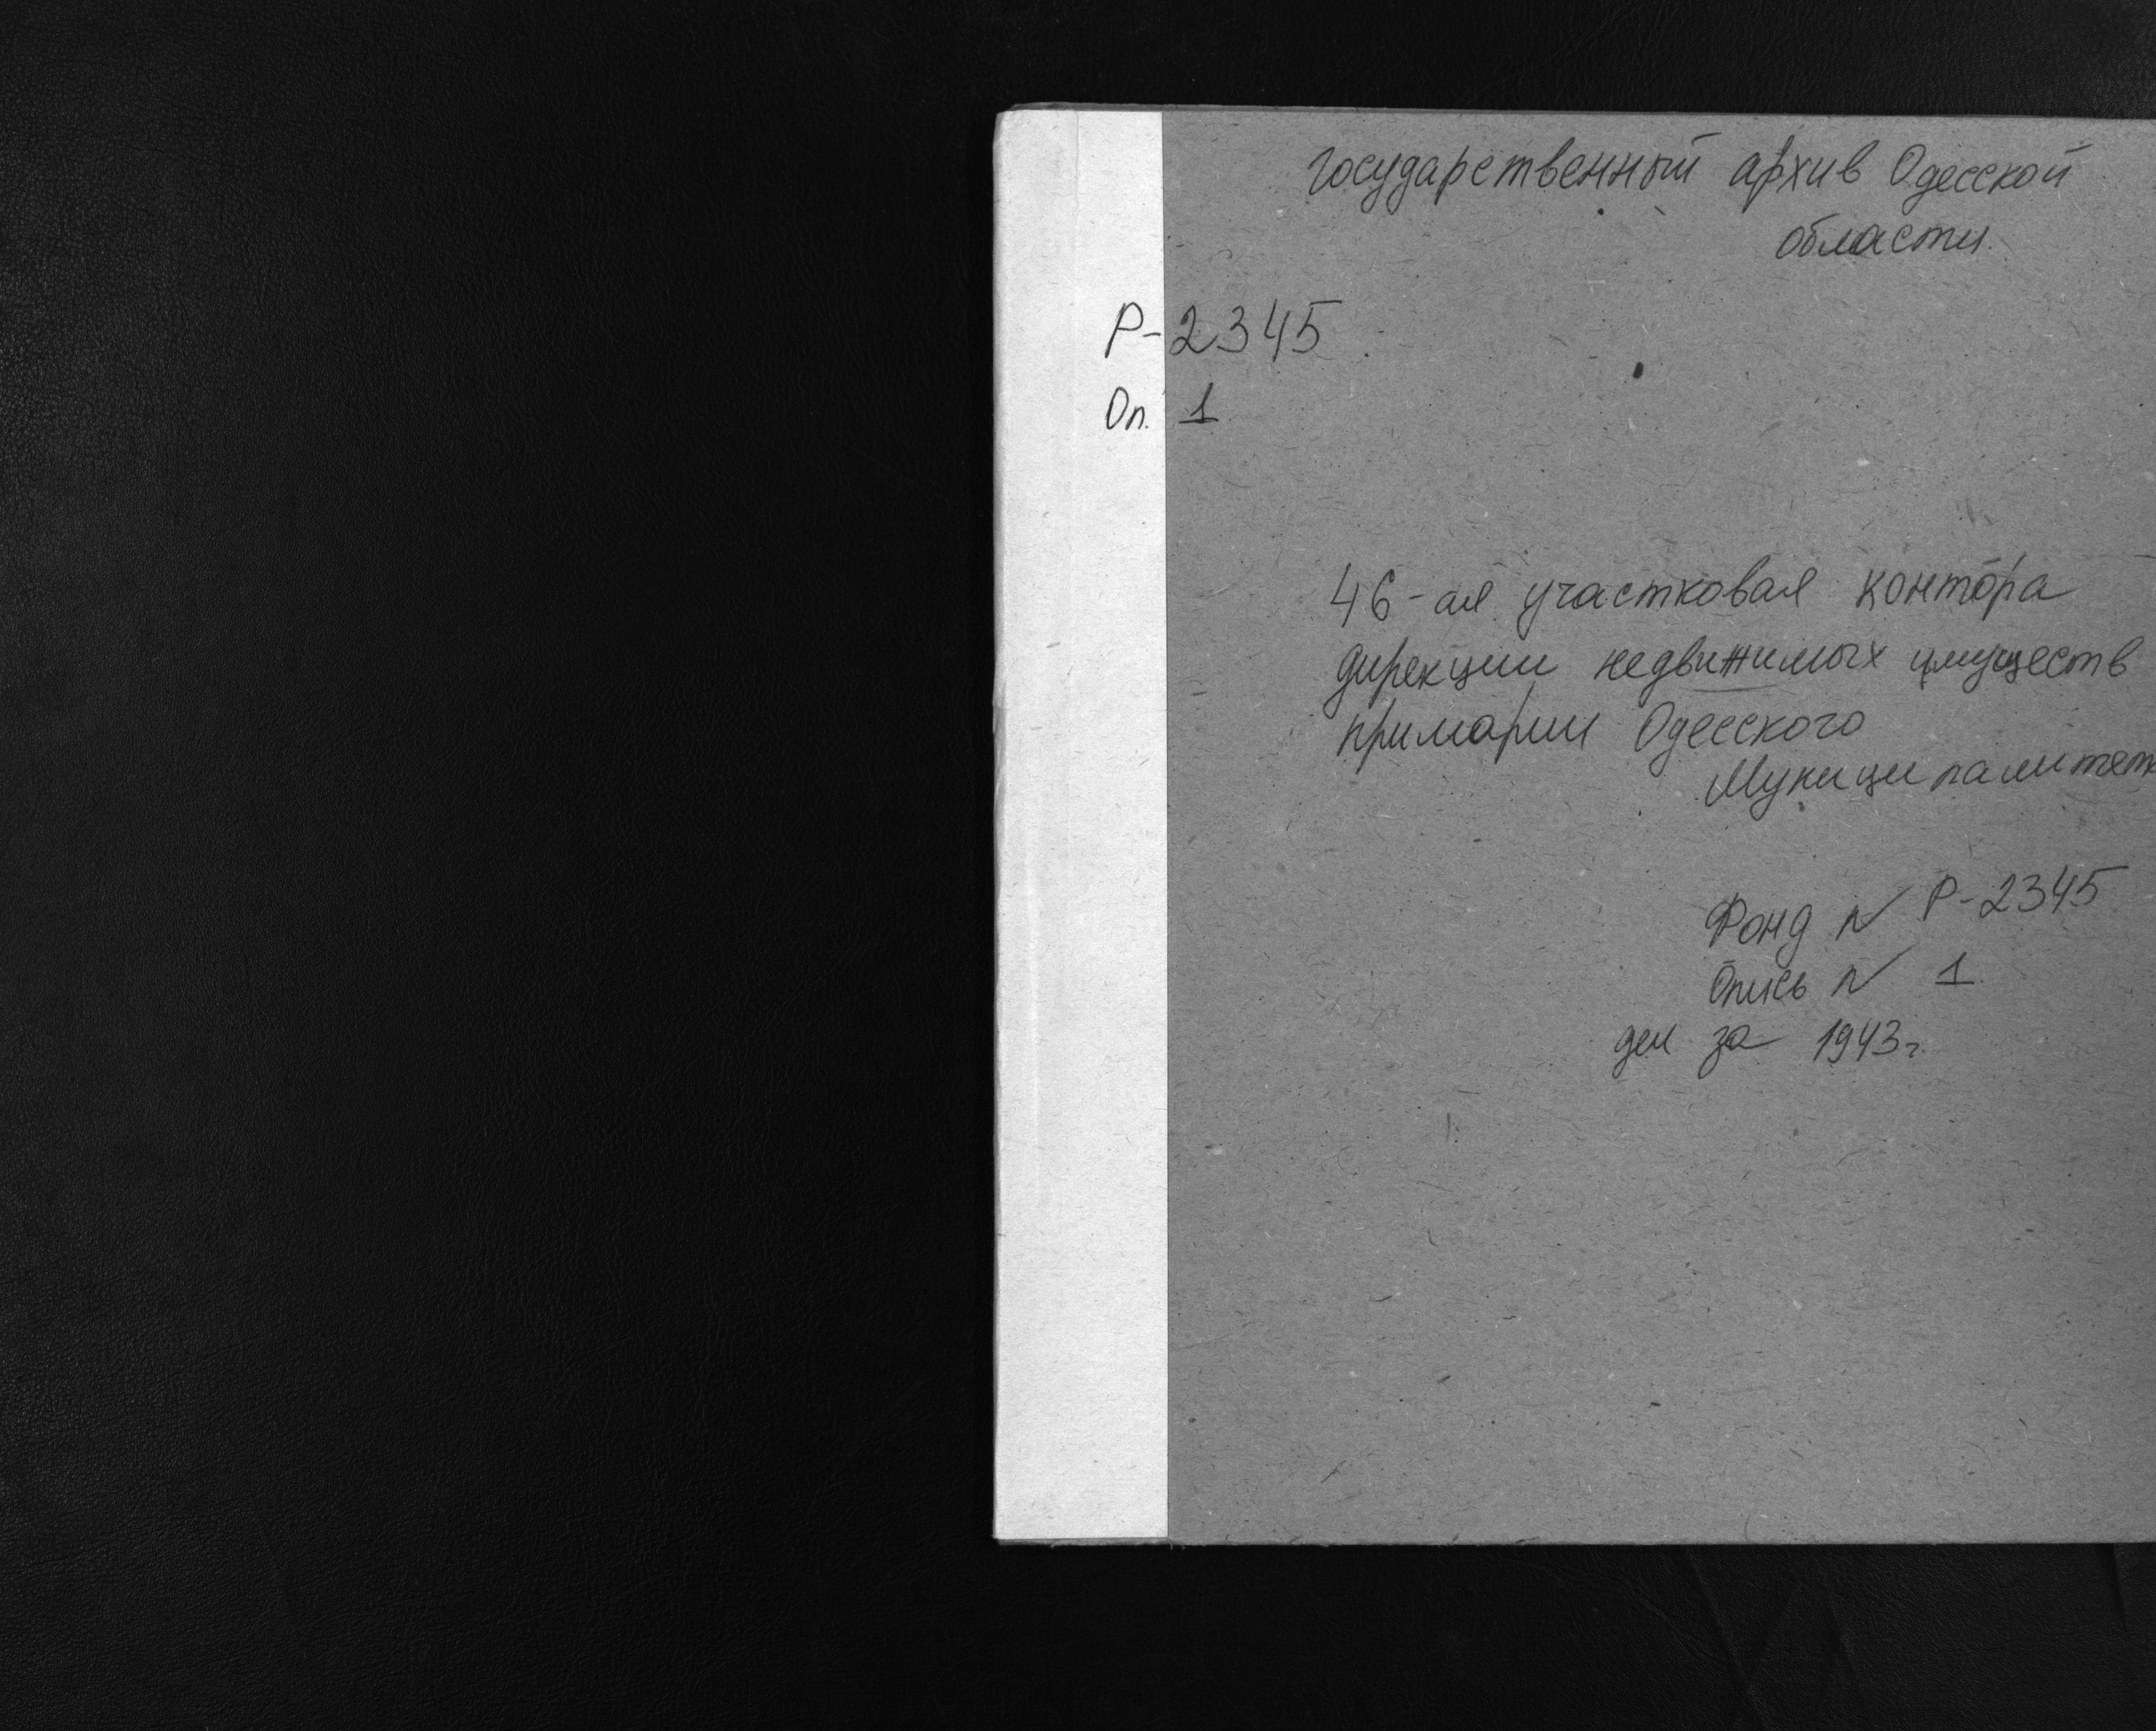 государственный архив Одесской
области.
Р-2345
Оп. 1
46-ая участковая контора
дирекции недвижимых имуществ
примарии Одесского
Муниципалитет
Фонд № Р-2345
Опись № 1
дел за 1943 г.